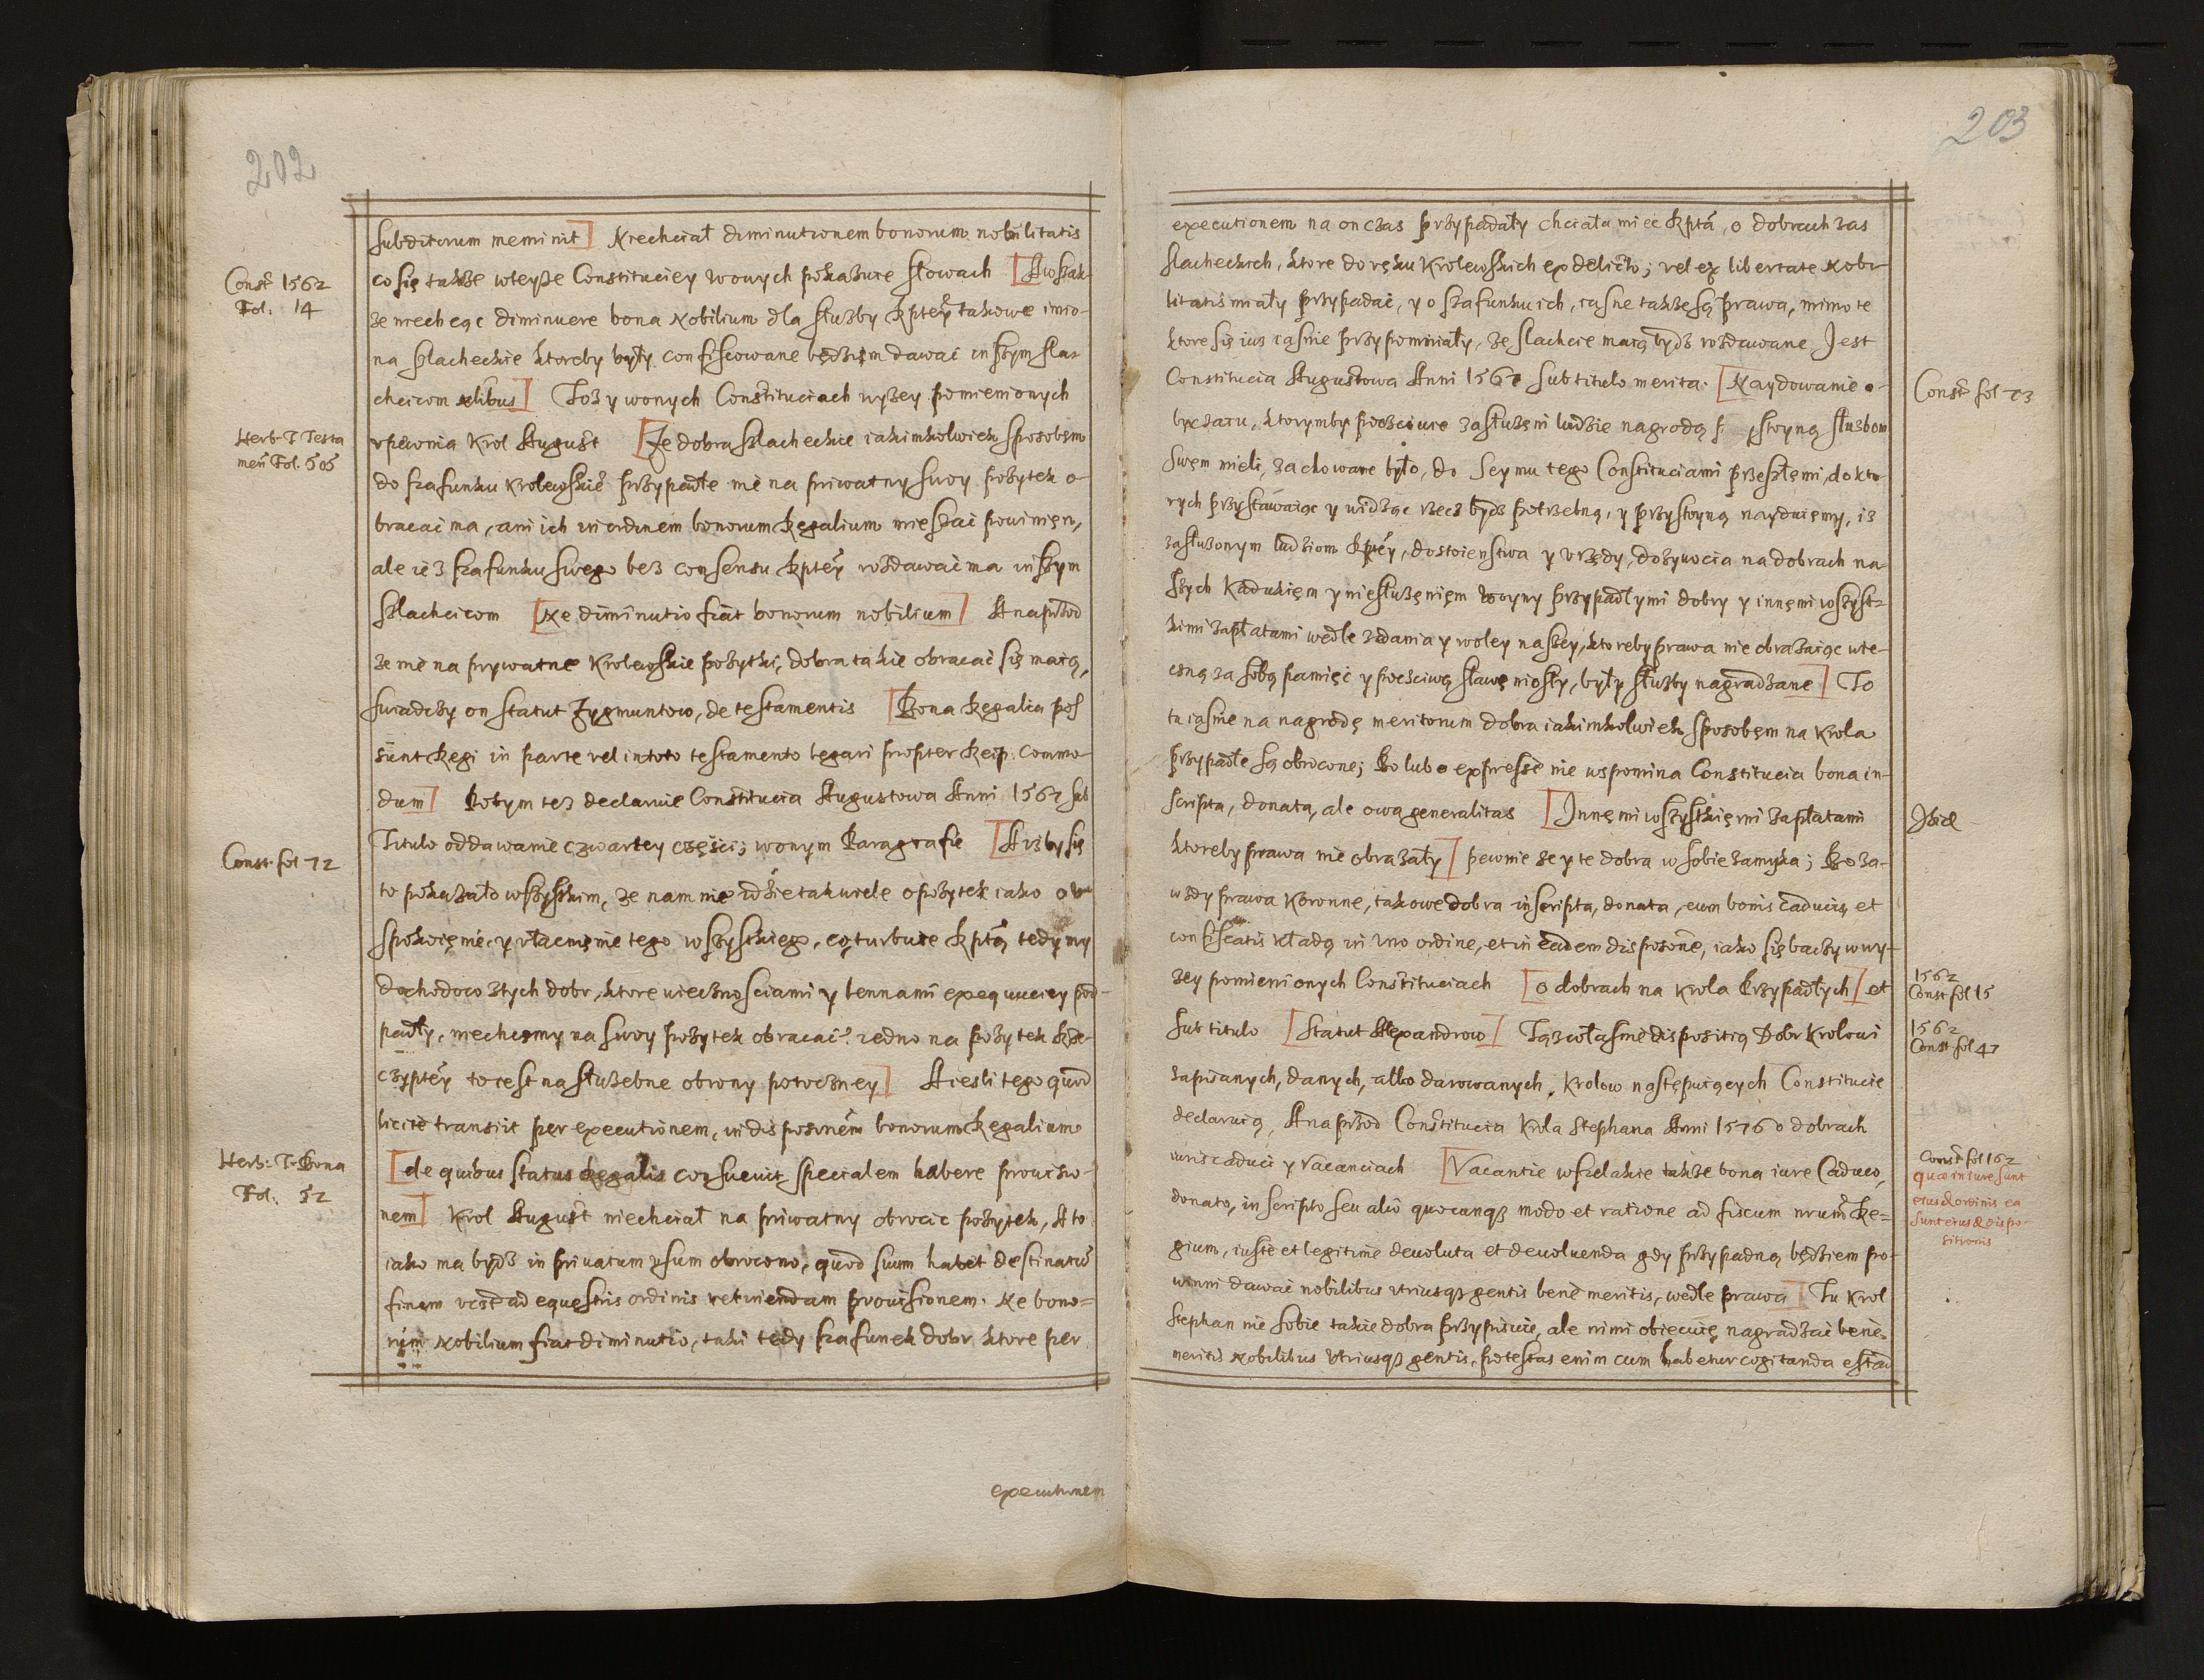 202
subditorum meminit] Niechciał diminutionem bonorum nobilitatis
Const 1562
Fol. 14
co się także wteyże Constituciey wonych pokazuie słowach [A wszak-
że niechcąc diminuere bona Nobilium dla służby Rptey takowe imio-
na szlacheckie ktoreby były confiscowane będziem dawać inszym sla-
chcicom] Toż y wonych Constituciach wyżey pomienionych
Herb. T Testa
men Fol. 505
vpewnia Krol August [Że dobra szlacheckie iakimkolwiek sposobem
do szafunku Krolewskie przypadłe nie na priwatny swoy pożytek o-
bracać ma, ani ich in ordinem bonorum Regalium mieszać powinien,
ale ież szafunku swego bez consensu Rptey rozdawać ma inszym
szlachcicom [Ne diminutio fiat bonorum nobilium] A naprzod
że nie na prywatne Krolewskie pożytki, dobra takie obracać się maią,
swiadczy on statut Zygmuntow, de testamentis [Bona Regalia pos
sunt Regi in parte vel in toto testamento legari propter Reip. Commo-
dum] Potym też declaruie Constitucia Augustowa Anni 1567 sub
Const. fol 72
Titulo oddawanie czwartey części; wonym Paragrafie [A iżby się
to pokazało wszystkim, że nam nie idzie tak wiele o pożytek iako o v
spokoięnie y vłacnięnie tego wszystkiego, co turbuie Rptą tedy my
dochodow ztych dobr, ktore wiecznosciami y lennami exequuciey pod-
padły, niechcemy na swoy pożytek obracać: iedno na pożytek Rze-
czyptey to iest na służebne obrony potoczney] A iesli tego quod
licite transiit per executionem, in disposnem bonorum Regalium
Herb: T. Bona
Fol. 52
[de quibus status Regalis consueuit specialem habere prouisio-
nem] Krol August niechciał na priwatny obrocić pożytek, A to
iako ma bydź in priuatum vsum obrocono, quod suum habet destinatu
finem vest ad equestris ordinis retinendam prouisionem. Ne bono-
rum Nobilium fiat diminutio, taki tedy szafunek dobr ktore per
executionem
203
executionem na on czas przypadały chciała mieć Rpta, o dobrach zas
slacheckich, ktore do ręku Krolewskich ex delicto; vel ex libertate Nobi-
litatis miały przypadać, y o szafunku ich, iasne także są prawa, mimo te
ktore się iuż iasnie przypominiały, że slachcie maią bydź rozdawane. Jest
Constitucia Augustowa Anni 1567 sub titulo merita. [Naydowanie o-
Const fol 73
byczaiu, ktorymby poczciwe zasłużęni ludzie nagrodą stoyną służbom
swęm mieli, zachowane było, do Seymu tego Constituciami przeszłęmi, do kto-
rych przystawaiąc y widząc rzecz bydź potrzebną, y przystoyną nayduięmy, iż
zasłużonym ludziom Rptey, dostoienstwa y vrzędy, dożywocia na dobrach na-
szych Kadukięm y niesłużęnięm woyny przypadłymi dobry y innęmi wszyst-
kimi zapłatami wedle zdania y woley naszey, ktoreby prawa nie obrażaiąc vte-
czną za sobą pamięć y poczciwą sławę niosły, były służby nagradzane] To
tu iasnie na nagrodę meritorum dobra iakimkolwiek sposobęm na Krola
przypadłe są obrocone; Bo lubo expresse nie wspomina Constitucia bona in-
scripta, donata, ale ową generalitas [Innęmi wszystkięmi zapłatami
Ibid
ktoreby prawa nie obrażały] pewnie że y te dobra w sobie zamyka; Bo za-
wzdy prawa Koronne, takowe dobra inscripta, donata, cum bonis caducis, et
confiscatis kładą in vno ordine, et in eadem disposone, iako się baczy w wy-
żey pomienionych Constituciach [o dobrach na Krola Przypadłych] et
1562
Const fol 15
sub titulo [Statut Alexandrow] Tąż własnie dispositią Dobr Krolowi
1562
Const fol 47
zapisanych, danych, albo darowanych, Krolow następuiących Constitucie
declaruią, A naprzod Constitucia Krola Stephana Anni 1576 o dobrach
iuris caduci y Vacanciach [Vacantie wszelakie także bona iure Caduco,
Const fol 162
quæ in iure sunt
eius & ordinis ea
sunt eius & dispo-
sitionis
donato, inscripto seu alio quocunq modo et ratione ad fiscum nrum Re=
gium, iuste et legitime deuoluta et deuoluenda gdy przypadną będziem po-
winni dawać nobilibus vtriusq gentis bene meritis, wedle prawa] Tu Krol
Stephan nie sobie takie dobra przypisuie, ale nimi obiecuię nagradzać bene
meritis Nobilibus Vtriusq gentis, potestas enim cum habetur cogitanda est ad